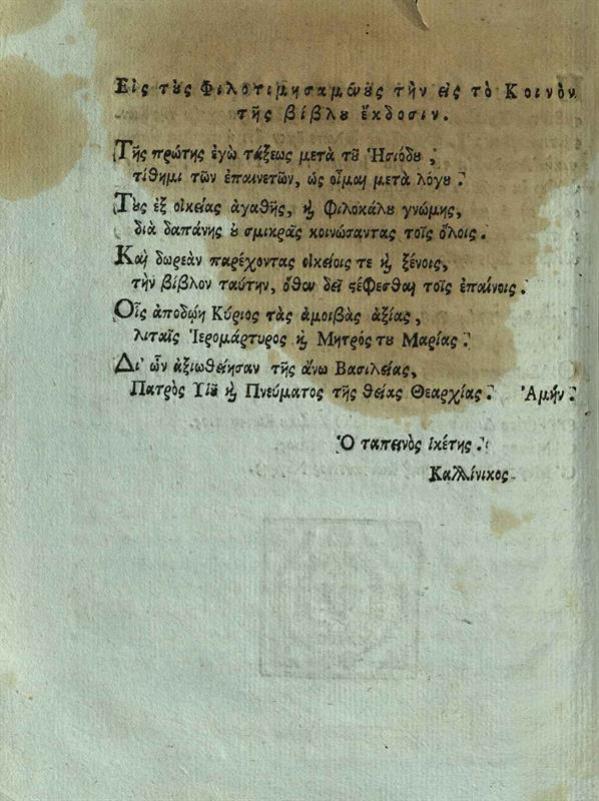 Εἰς τοὺς Φιλοτιμησαμένους τὴν εἰς τὸ Κοινὸν
τῆς βίβλου ἔκδοσιν.
Τῆς πρώτης ἐγὼ τάξεως μετὰ τοῦ Ἡσιόδου,
τίθημι τῶν ἐπαινετῶν, ὡς οἶμαι μετὰ λόγου.
Τοὺς ἐξ οἰκείας ἀγαθῆς, καὶ Φιλοκάλου γνώμης,
διὰ δαπάνης οὐ σμικρᾶς κοινώσαντας τοῖς ὅλοις.
Καὶ δωρεὰν παρέχοντας οἰκείοις τε καὶ ξένοις,
τὴν βίβλον ταύτην, ὅθεν δεῖ στέφεσθαι τοῖς ἐπαίνοις.
Οἷς ἀποδῴη Κύριος τὰς ἀμοιβὰς ἀξίας,
λιταῖς Ἱερομάρτυρος καὶ Μητρὸς του Μαρίας.
Δι' ὧν ἀξιωθείησαν τῆς ἄνω Βασιλείας,
Πατρὸς Υἱοῦ καὶ Πνεύματος τῆς θείας Θεαρχίας. Ἀμήν.
Ὁ ταπεινὸς ἱκέτης.
Καλλίνικος.